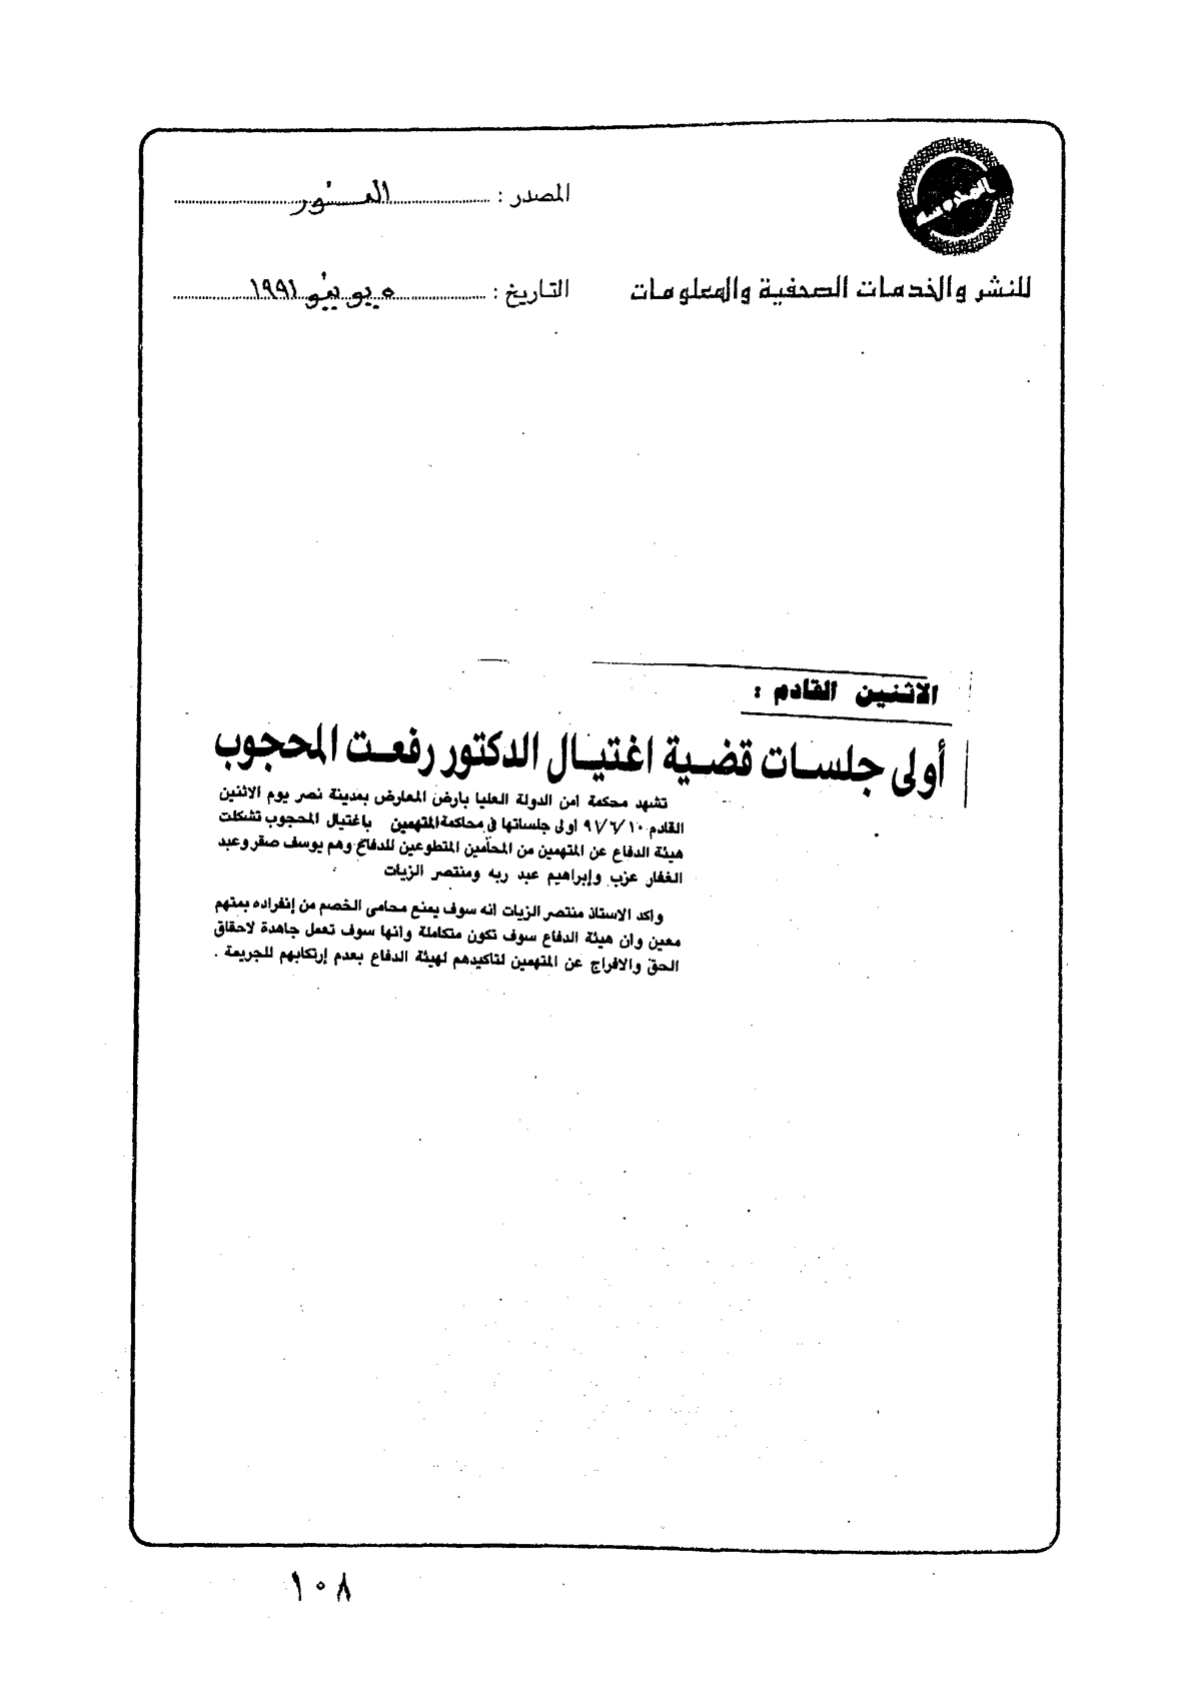 المصدر : النور
للنشر والخدمات الصحفية والمعلومات
التاريخ : ٥ يونيو ١٩٩١
الاثنين القادم :
أولى جلسات قضية اغتيال الدكتور رفعت المحجوب
تشهد محكمة امن الدولة العليا بارض المعارض بمدينة نصر يوم الاثنين
القادم ٩١/٦/١٠ أولى جلساتها في محاكمة المتهمين باغتيال المحجوب تشكلت
هيئة الدفاع عن المتهمين من المحامين المتطوعين للدفاع وهم يوسف صقر وعبد
الغفار عزب وإبراهيم عبد ربه ومنتصر الزيات
واكد الاستاذ منتصر الزيات انه سوف يمنع محامى الخصم من إنفراده بمتهم
معين وان هيئة الدفاع سوف تكون متكاملة وانها سوف تعمل جاهدة لاحقاق
الحق والافراج عن المتهمين لتاكيدهم لهيئة الدفاع بعدم إرتكابهم للجريمة .
١٠٨